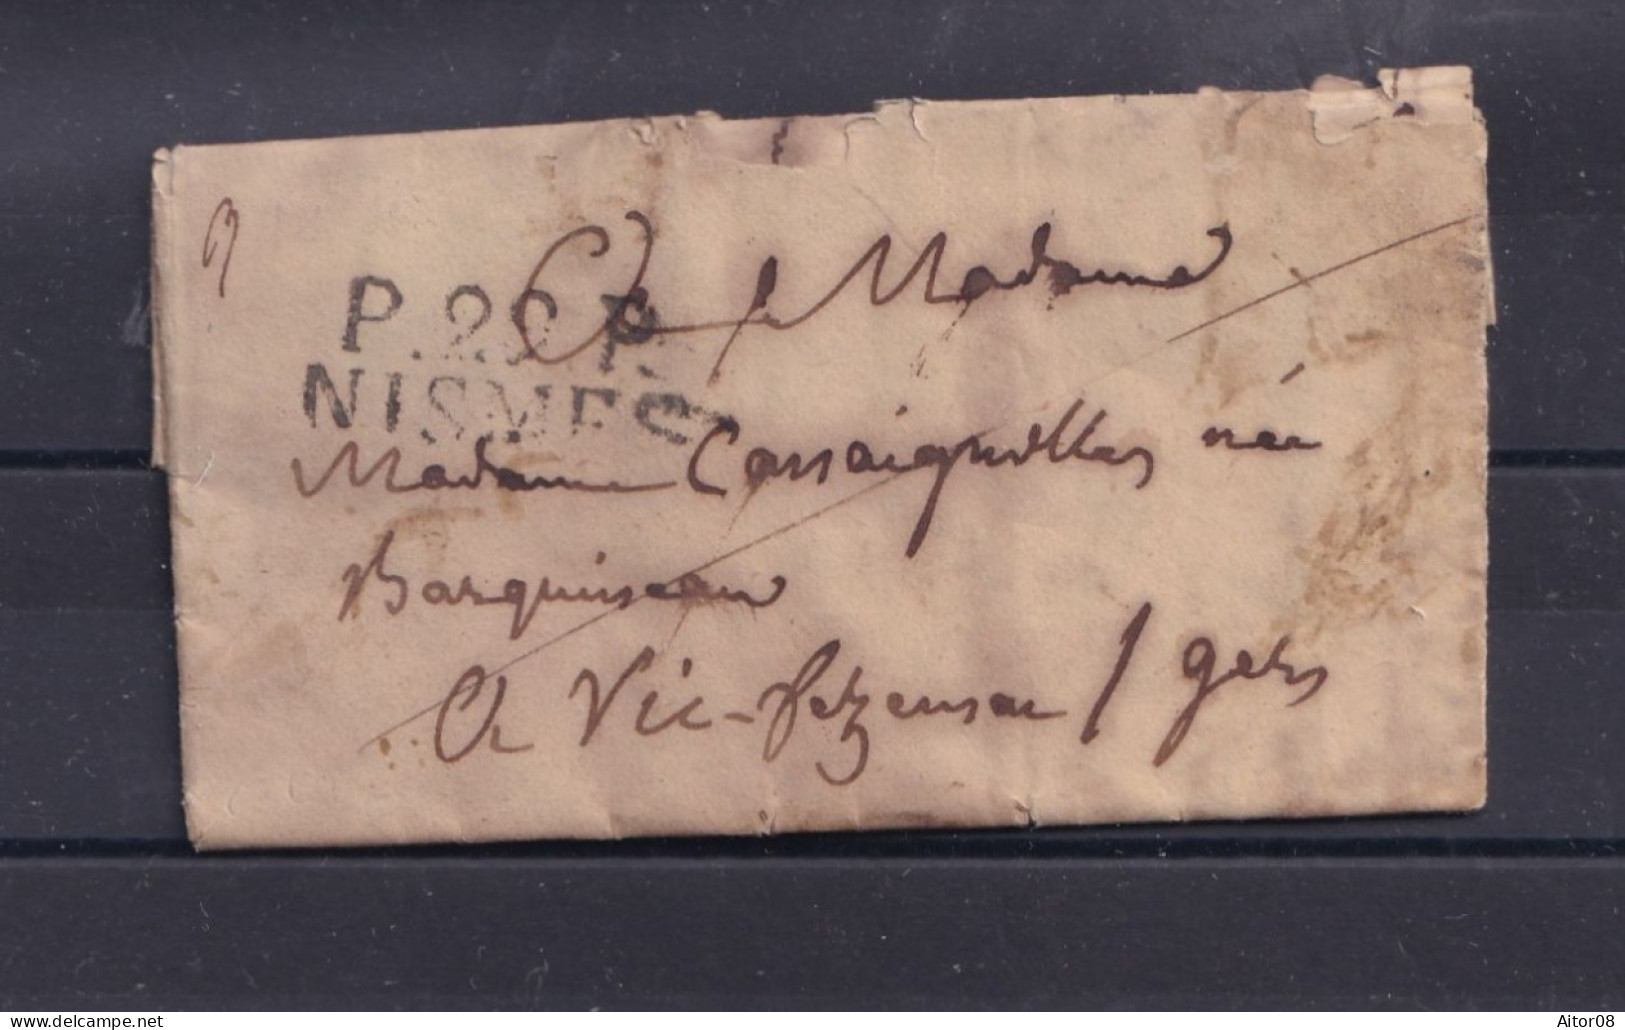 P.29.P.
NISMES
A Madame
Madame Cassaignolles née
Barquisseau
A Vic-fezensac / gers
www.delcampe.net
Aitor08